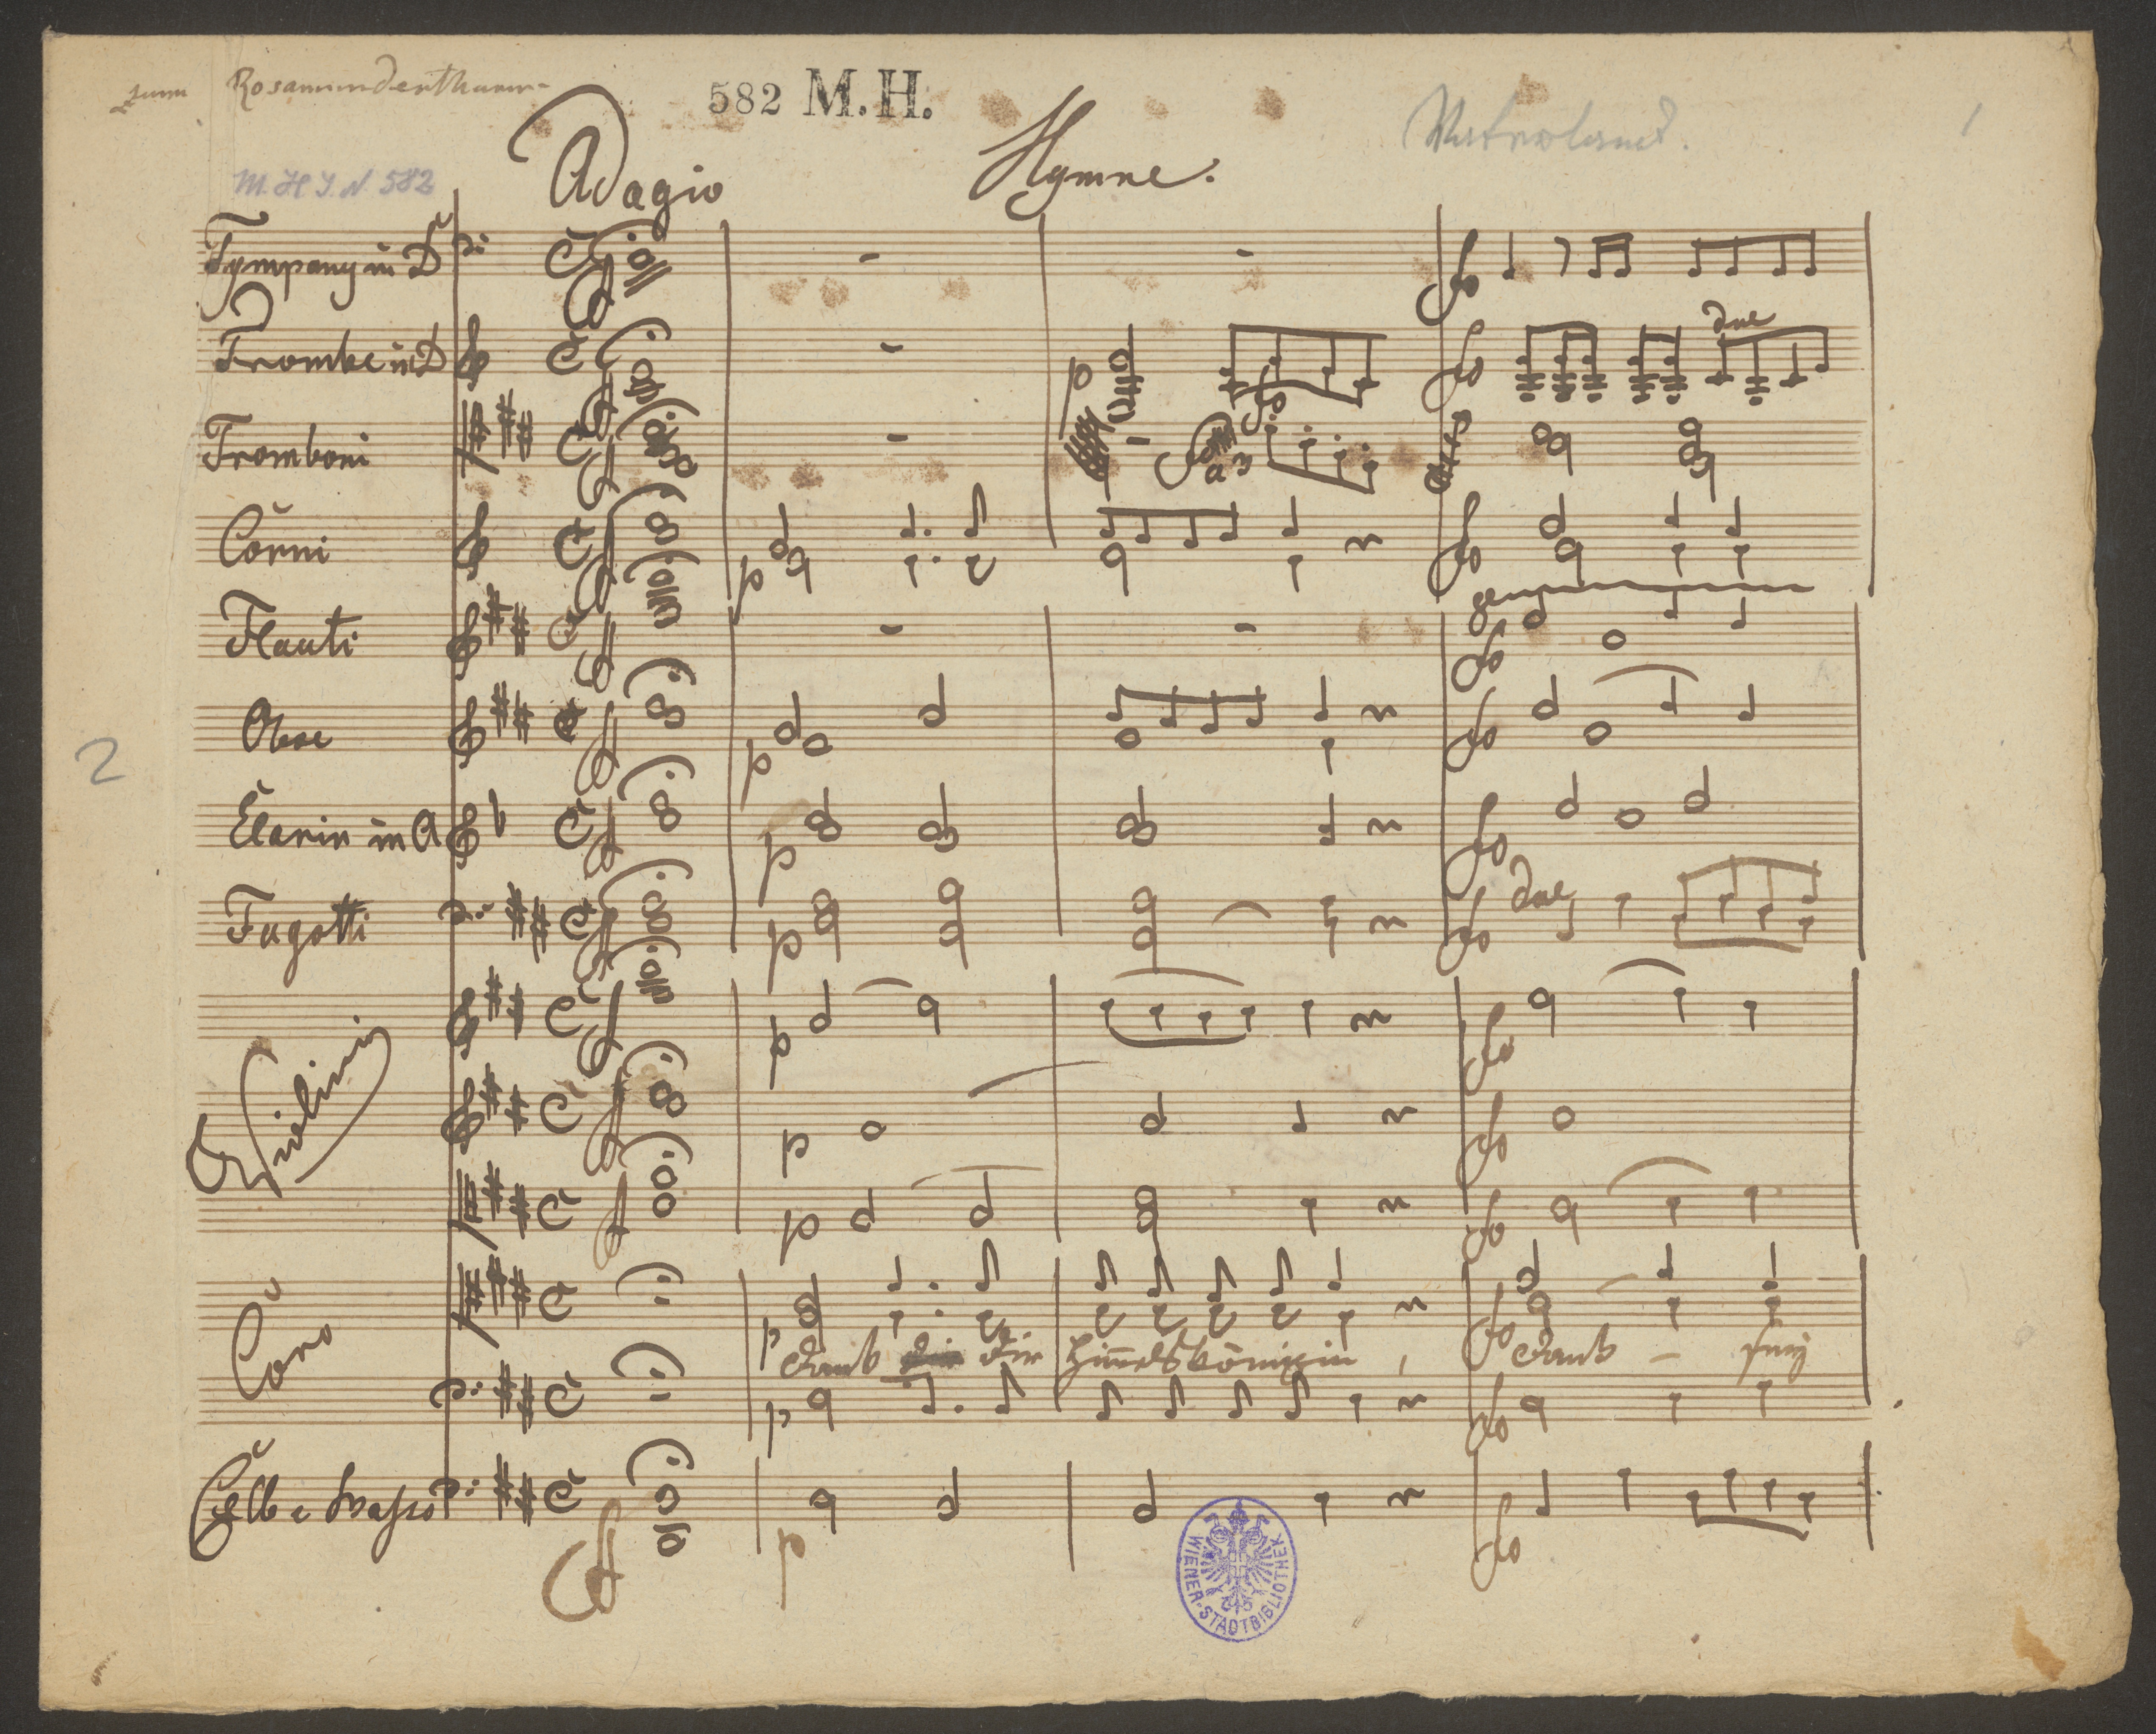 zum Rosamundenthurm
582 M.H.
Vaterland.
1
M. H. I. N. 582
Adagio
Hymne.
Tympany in D
Trombe in D
p
due
Tromboni
a 3
Corni
p
Flauti
Oboe
p
2
Clarin in A
p
Fagotti
p
due
p
Violini
p
p
Coro
p
Dank dir dir Himelskönigin, Dank – sey
p
Cello e Basso
p
WIENER-STADTBIBLIOTHEK